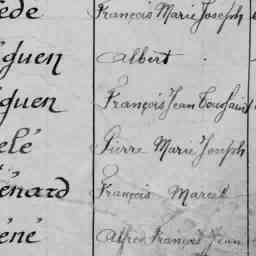 ède François Marie Joseph
guen Albert
guen François Jean Toussaint
elé Pierre Marie Joseph
énard François Marcel
éné Alfred François Jean